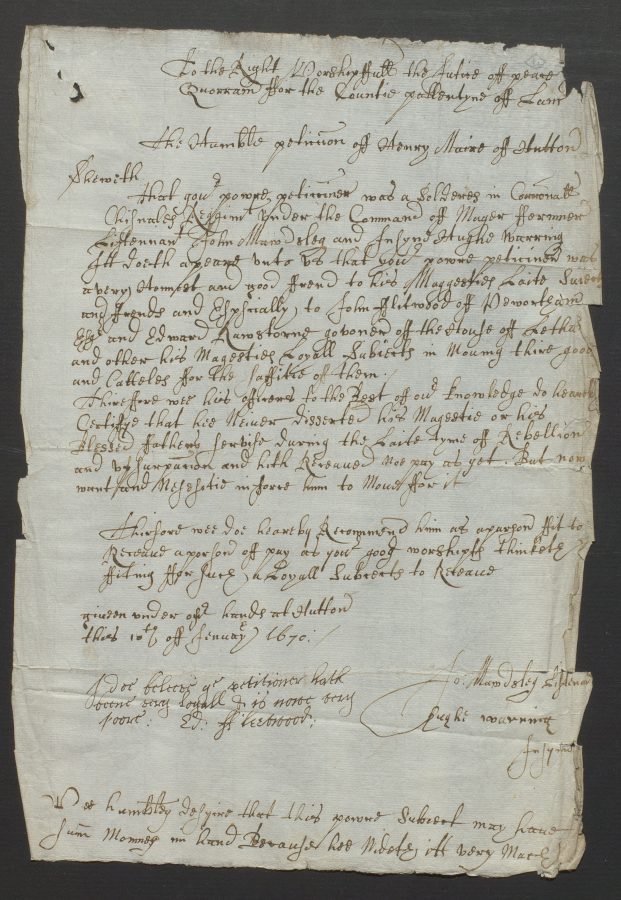 To the Right Worshipfull the Jutire off peace
Quorram ffor the Countie pallentyne off Lan
The Humble peticion off Henry Maire off Hutton
Sheweth
that your powre peticiner was a Solderes in Coronall
Chisnales Reggint Under the Command off Mager
Liftennant John Mawdsley and Insynd Hughe Warring
Itt doeth apeare unto Us that your powre peticiner was
a very Honest and good frend to his Maggesties Laite
and frends and Espicially to John fflitwood off Peworteam
Esqr and Edward Rawstorne govoner off the House off Letha
and other his Magesties Loyall Subierts in Moving thire good
and Catteles ffor the saffitie of them
Thireffore wee his officers to the Best off our knowledge do heareby
Certiffye that hee Never disserted his Magestie or his
Blessed ffathers servise during the Laite tyme off Rebellion
and Ussurpacion and hith Receaved noe pay as yet. But now
want and Nessesitie inforre him to Move ffor it
Thirfore wee doe heareby Recommend him as a parson ffit to
Receave a porson off pay as your good worshipth thinketh
ffiting ffor such a Loyall Subierts to Receave
giveen under our hands at Hutton
this 10th off Jenuary 1670:
I doe beleeve ye petitioner hath
beene very loyall & is nowe very
poore: Ed: ffleetwood:
Jo: Mawdsley
Hughe Warring
Insynd
Wee humbley desyire that this powre Subiect may have
sum Monney in hand Because hee Nideth itt very Much